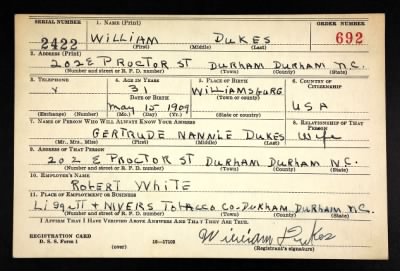 SERIAL NUMBER 1. NAME (Print) ORDER NUMBER
2422 WILLIAM DUKES 692
(First) (Middle) (Last)
2. ADDRESS (Print)
202 E PROCTOR ST DURHAM DURHAM N.C.
(Number and street or R. F. D. number) (Town) (County) (State)
3. TELEPHONE 4. AGE IN YEARS 5. PLACE OF BIRTH 6. COUNTRY OF CITIZENSHIP
31 WILLIAMSBURG
DATE OF BIRTH
May 15 1909 USA
(Exchange) (Number) (Mo.) (Day) (Yr.) (State or country)
7. NAME OF PERSON WHO WILL ALWAYS KNOW YOUR ADDRESS 8. RELATIONSHIP OF THAT PERSON
GERTRUDE NANNIE DUKES Wife
(Mr., Mrs., Miss) (First) (Middle) (Last)
9. ADDRESS OF THAT PERSON
202 E PROCTOR ST DURHAM DURHAM N.C.
(Number and street or R. F. D. number) (Town) (County) (State)
10. EMPLOYER'S NAME
Robert White
11. PLACE OF EMPLOYMENT OR BUSINESS
Liggett + MYERS TOBACCO CO. DURHAM DURHAM N.C.
(Number and street or R. F. D. number) (Town) (County) (State)
I AFFIRM THAT I HAVE VERIFIED ABOVE ANSWERS AND THAT THEY ARE TRUE.
REGISTRATION CARD
D. S. S. Form 1 (over) 16—17105 William Dukes
(Registrant's signature)